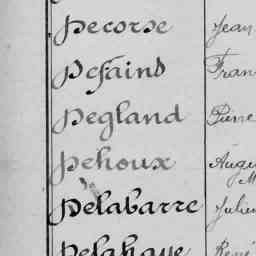 Decorse Jean
Defains Fran
Degland Pierre
Dehoux Augu
M
Delabarre Julien
Delahaye René